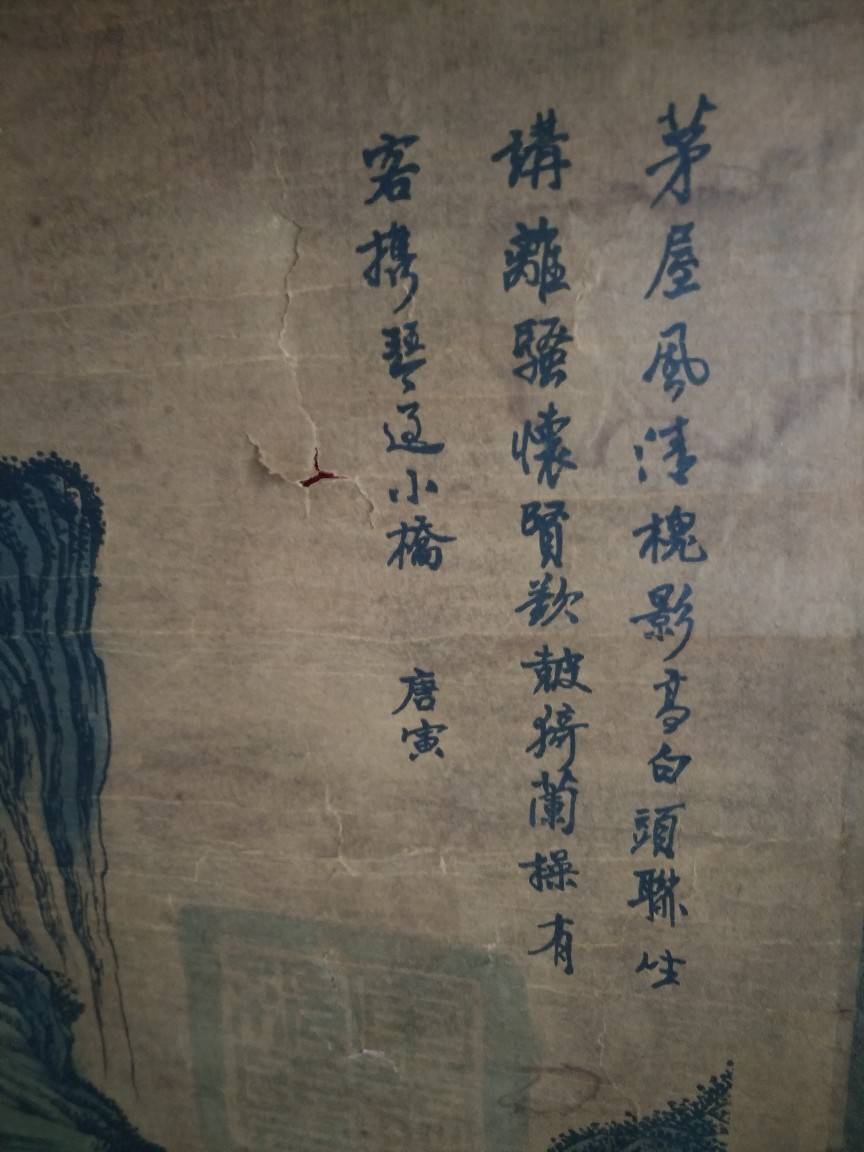 茅屋風清槐影高白頭聯坐
講離騷懷賢歎鼓猗蘭操有
客攜琴過小橋
唐寅